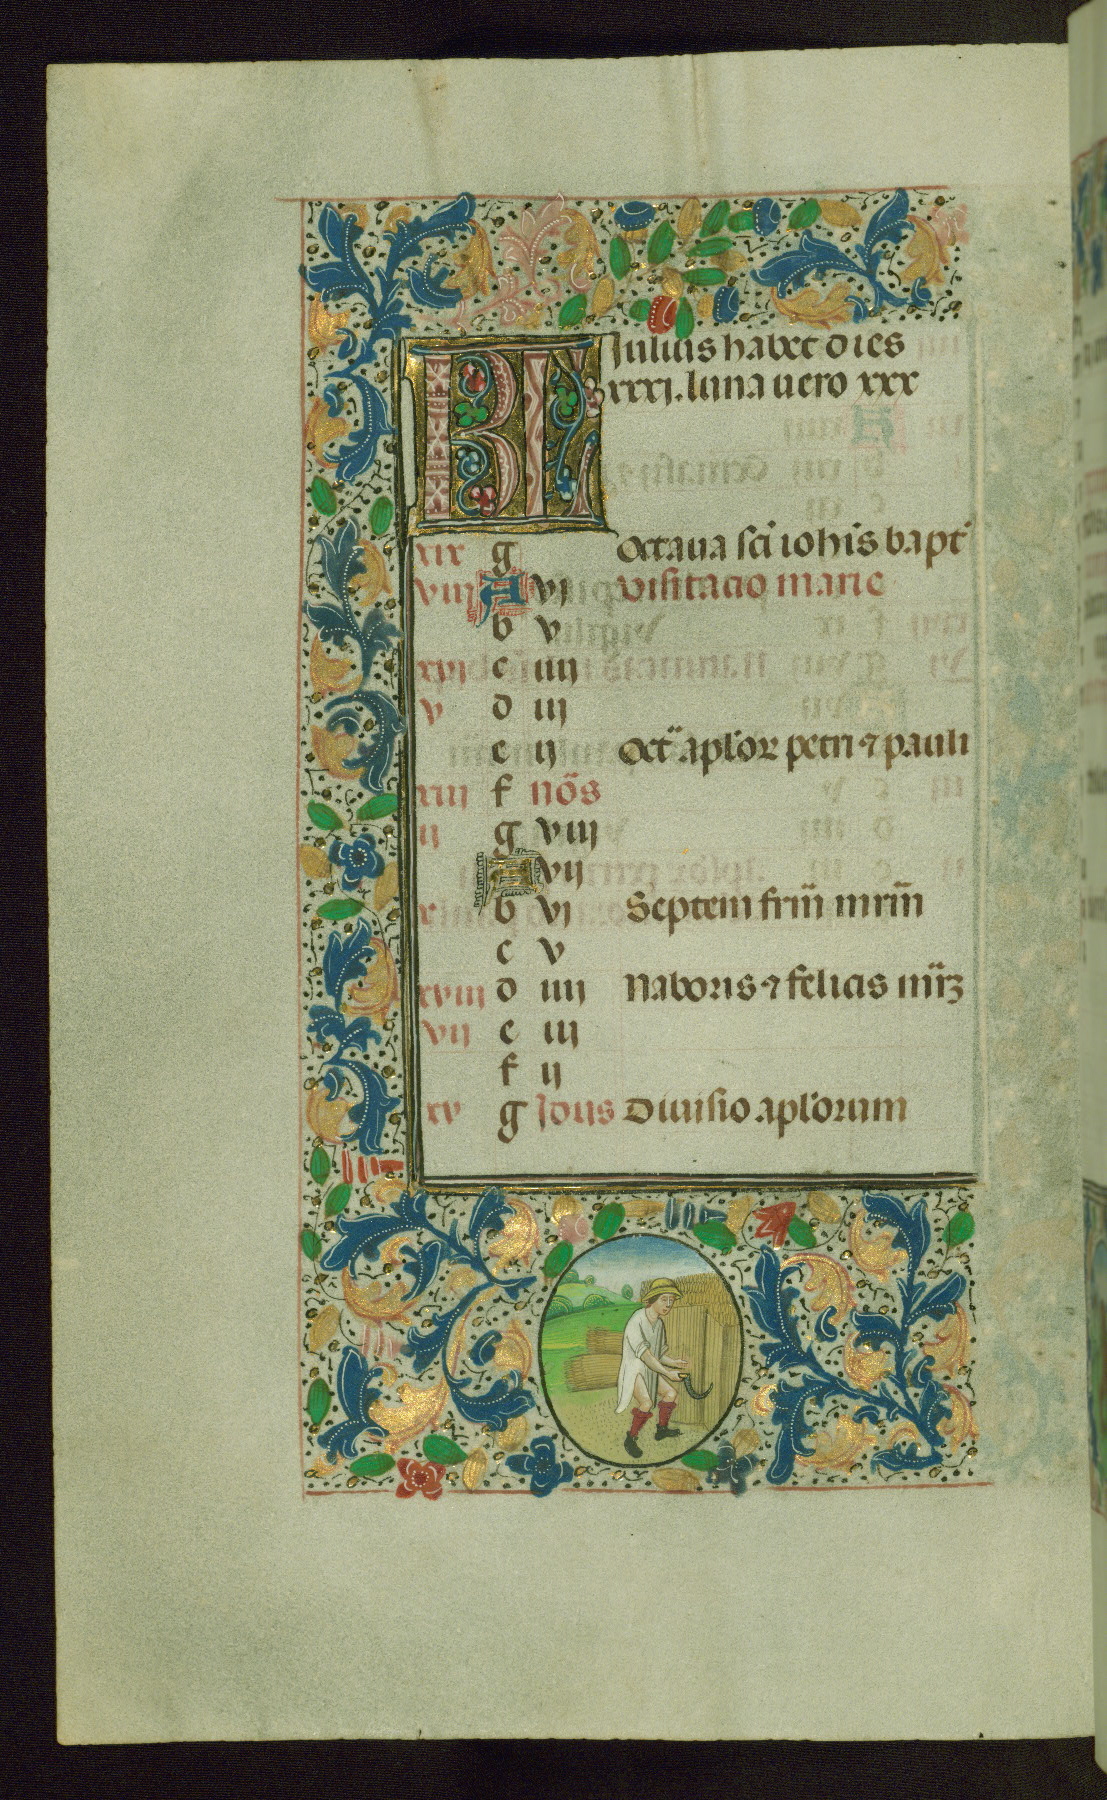 KL Julius habet dies
xxxj. luna vero xxx
xix g Octaua sci iohis bapt
viij A vj visitacio marie
b v
xvj c iiij
v d iij
e ij Oct aplor petri ⁊ pauli
xiij f nos
ij g viij
A vij
x b vj Septem frum mrm
c v
xviij d iiij Naboris ⁊ felicis
vij e iij
f ij
xv g Idus Diuisio aplorum